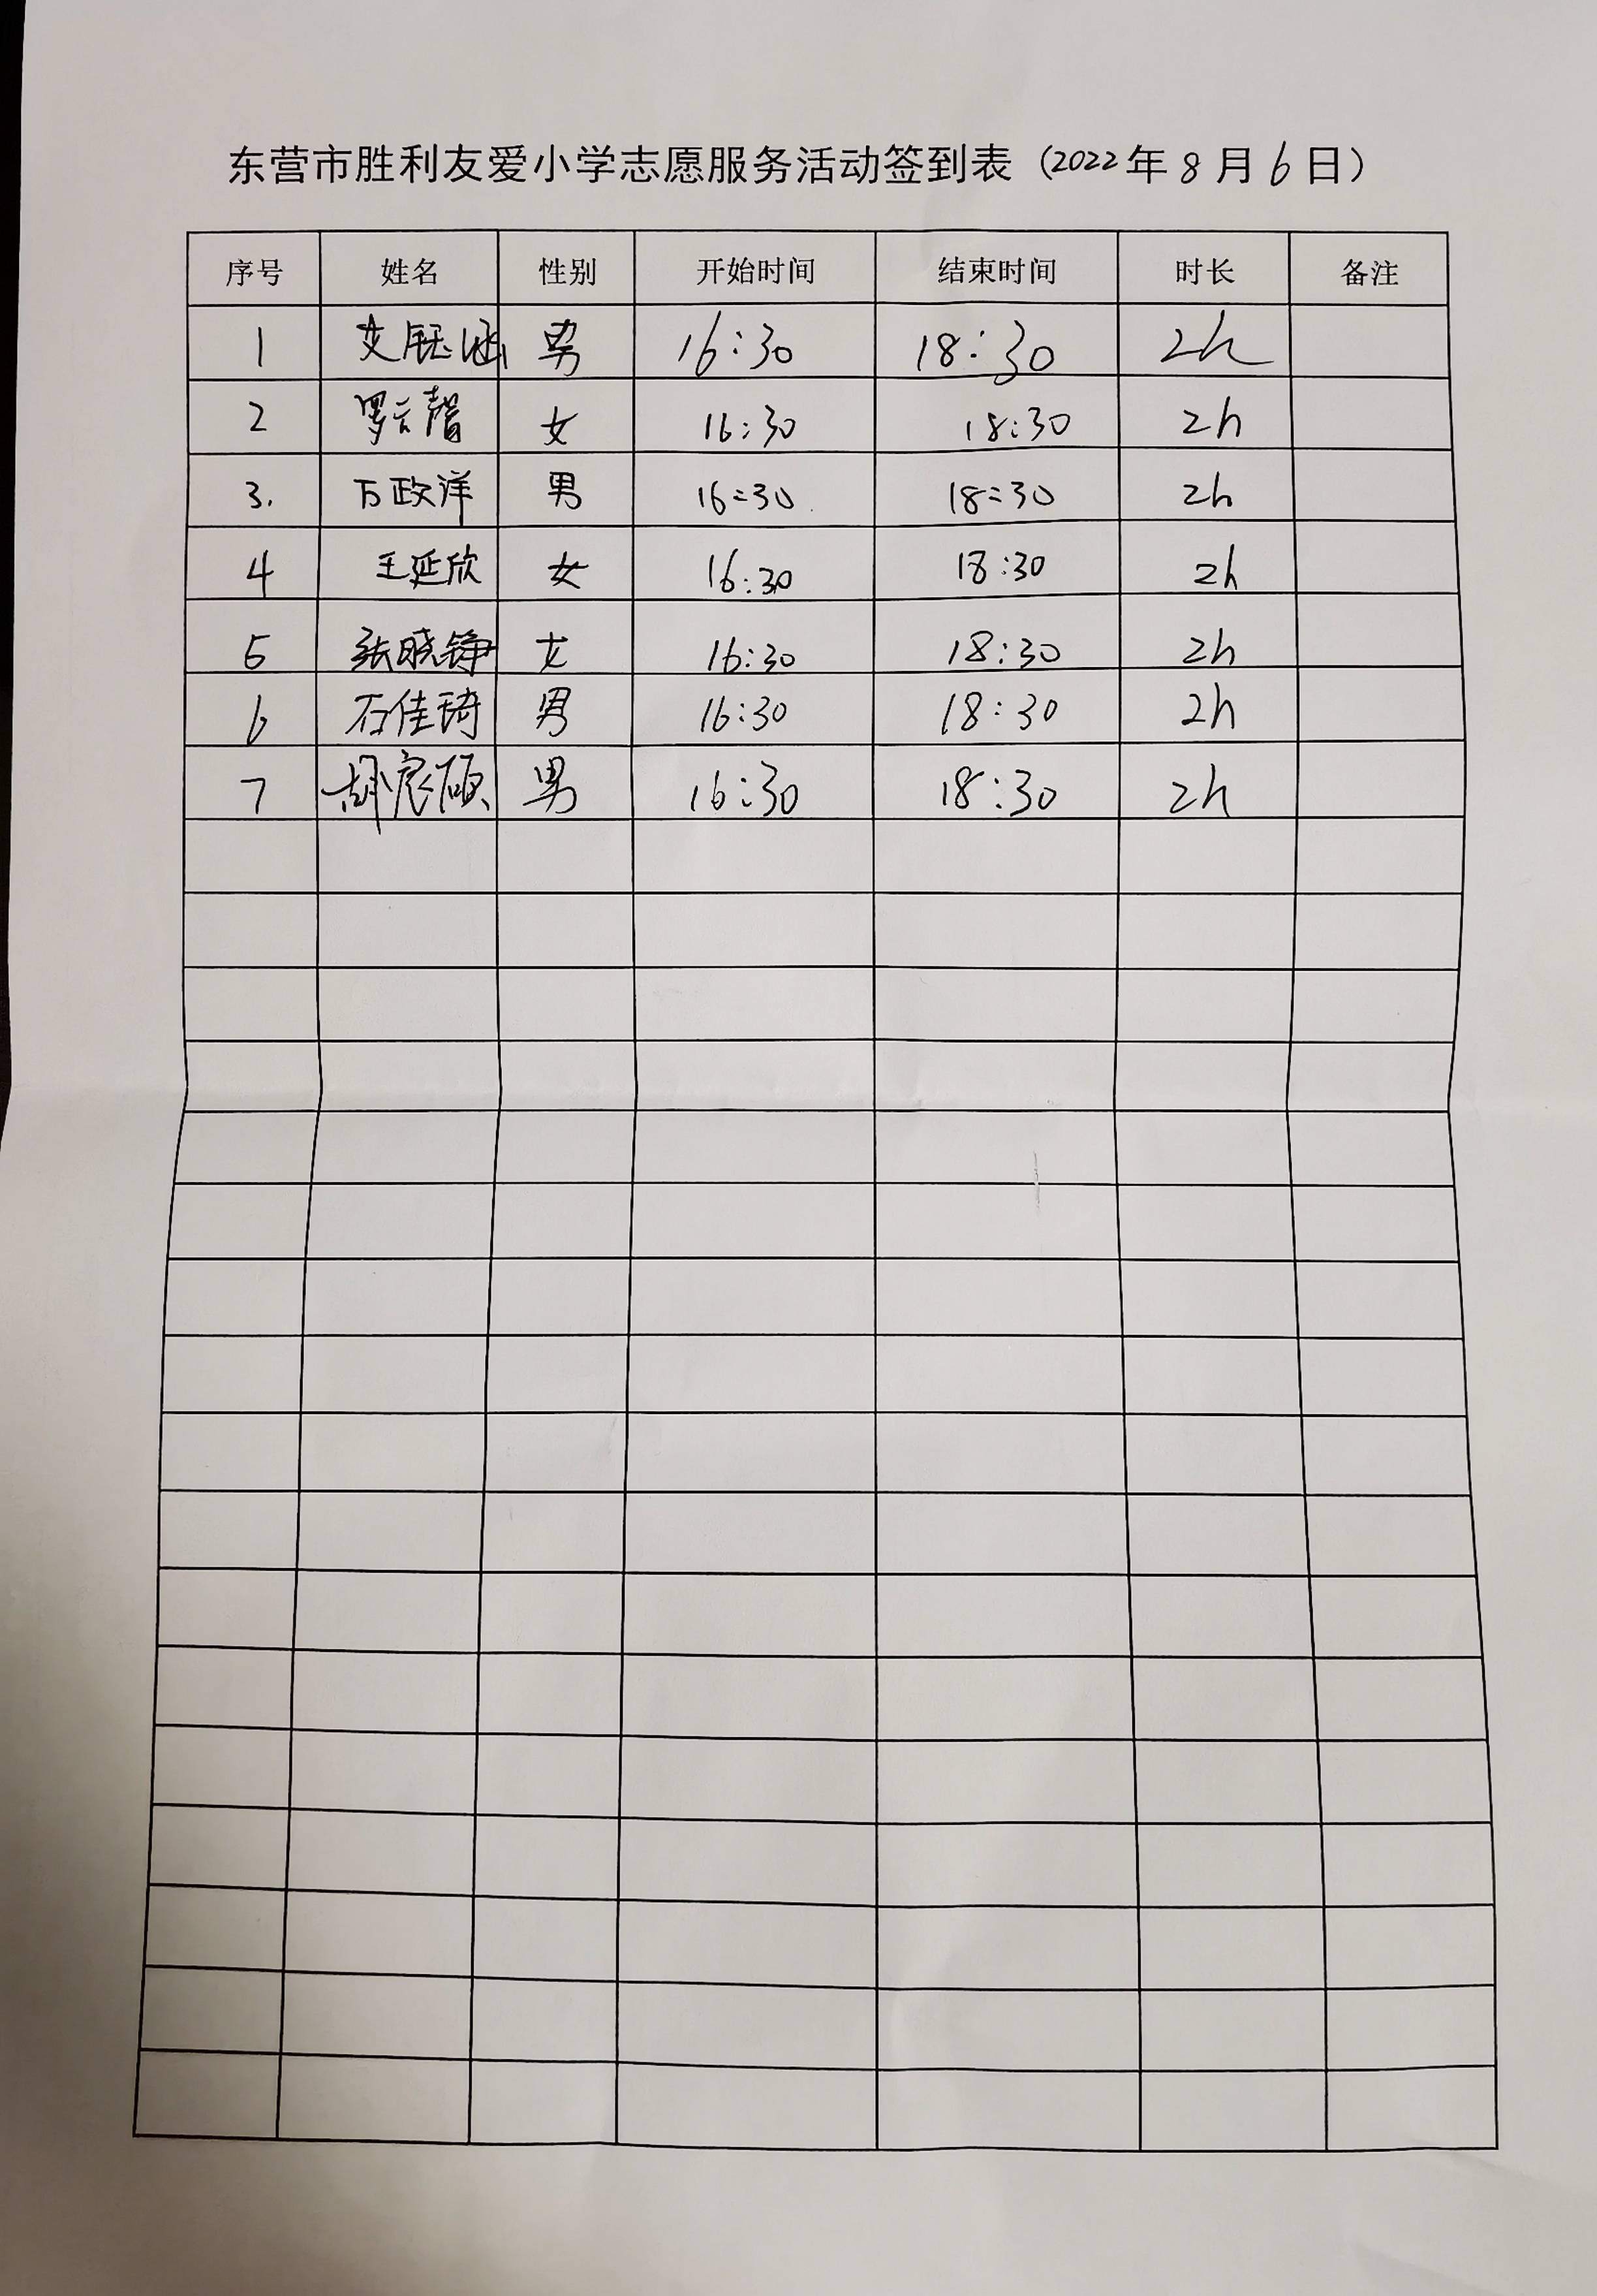 东营市胜利友爱小学志愿服务活动签到表（2022年8月6日）
序号 姓名 性别 开始时间 结束时间 时长 备注
1 艾钰涵 男 16:30 18:30 2h
2 罗云馨 女 16:30 18:30 2h
3. 万政洋 男 16:30 18:30 2h
4 王延欣 女 16:30 18:30 2h
5 张晓铮 女 16:30 18:30 2h
6 石佳琦 男 16:30 18:30 2h
7 胡宸硕 男 16:30 18:30 2h